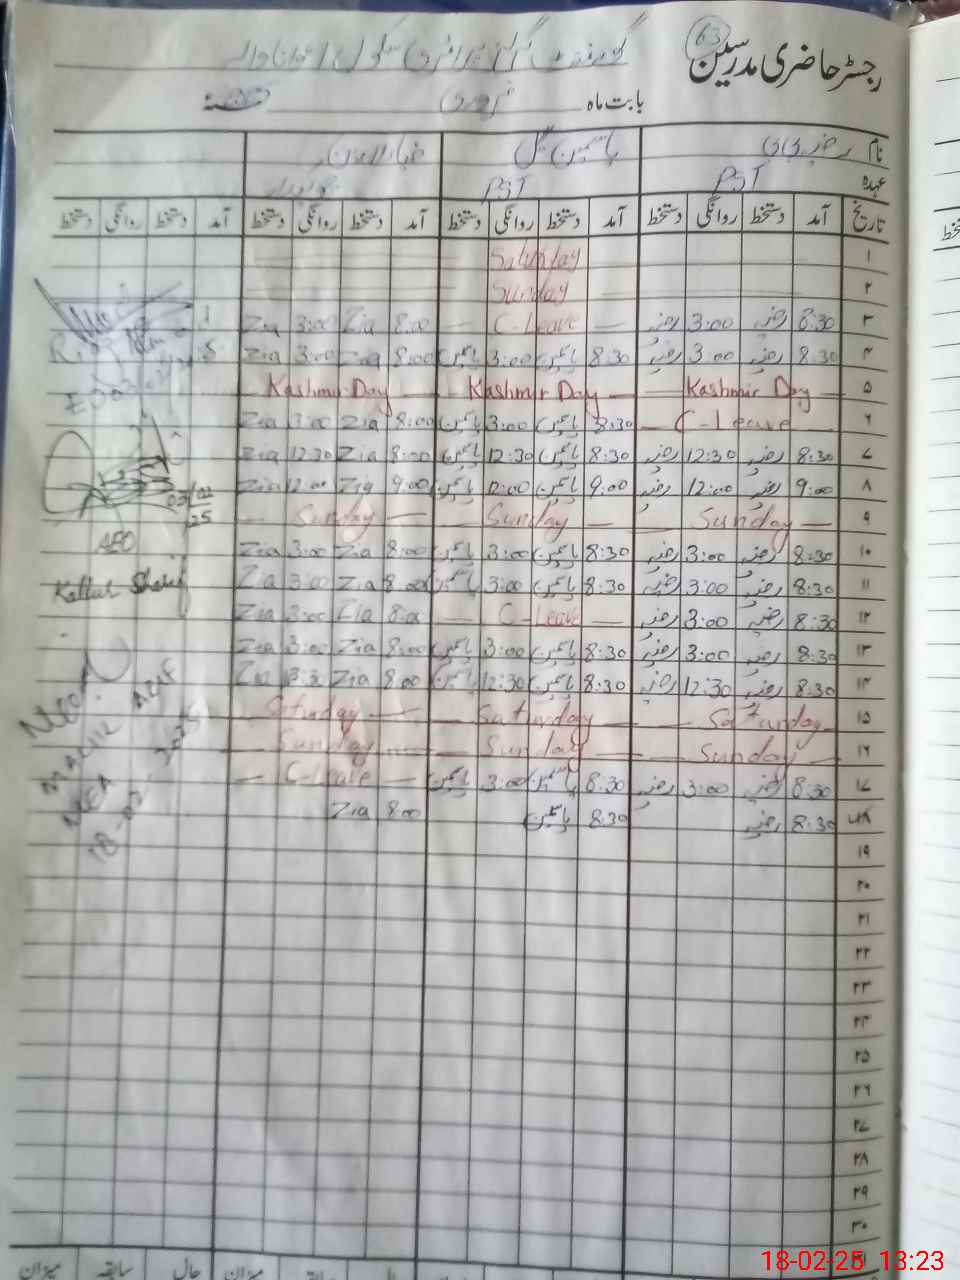 63
رجسٹر حاضری مدرسین گورنمنٹ گرلز پرائمری سکول
بابت ماہ فروری
نام رضیہ بی بی یاسمین گل ضیاء الدین
عہدہ PST PST
تاریخ آمد دستخط روانگی دستخط آمد دستخط روانگی دستخط آمد دستخط روانگی دستخط آمد دستخط روانگی دستخط
۱ Saturday
۲ Sunday
۳ 8:30 رضیہ 3:00 رضیہ — C-Leave — 8:00 Zia 3:00 Zia
۴ 8:30 رضیہ 3:00 رضیہ 8:30 یاسمین 3:00 یاسمین 8:00 Zia 3:00 Zia
۵ Kashmir Day — Kashmir Day — Kashmir Day —
۶ — C-Leave — 8:30 یاسمین 3:00 یاسمین 8:00 Zia 3:00 Zia
۷ 8:30 رضیہ 12:30 رضیہ 8:30 یاسمین 12:30 یاسمین 8:00 Zia 12:30 Zia
۸ 9:00 رضیہ 12:00 رضیہ 9:00 یاسمین 12:00 یاسمین 9:00 Zia 12:00 Zia
۹ — Sunday — Sunday — Sunday —
۱۰ 8:30 رضیہ 3:00 رضیہ 8:30 یاسمین 3:00 یاسمین 8:00 Zia 3:00 Zia
۱۱ 8:30 رضیہ 3:00 رضیہ 8:30 یاسمین 3:00 یاسمین 8:00 Zia 3:00 Zia
۱۲ 8:30 رضیہ 3:00 رضیہ — C-Leave — 8:00 Zia 3:00 Zia
۱۳ 8:30 رضیہ 3:00 رضیہ 8:30 یاسمین 3:00 یاسمین 8:00 Zia 3:00 Zia
۱۴ 8:30 رضیہ 12:30 رضیہ 8:30 یاسمین 12:30 یاسمین 8:00 Zia Zia
۱۵ Saturday — Saturday — Saturday
۱۶ Sunday — Sunday — Sunday
۱۷ 8:30 رضیہ 3:00 رضیہ 8:30 یاسمین 3:00 یاسمین — C-Leave —
۱۸ 8:30 رضیہ 8:30 یاسمین 8:00 Zia
۱۹
۲۰
۲۱
۲۲
۲۳
۲۴
۲۵
۲۶
۲۷
۲۸
۲۹
۳۰
۳۱
AEO
میزان سابقہ حال میزان
18-02-25 13:23